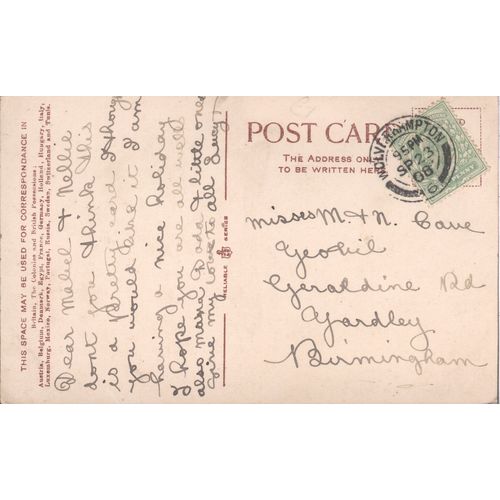 THIS SPACE MAY BE USED FOR CORRESPONDANCE IN
Britain, The Colonies and British Possessions;
Austria, Belgium, Danmark, Egypt, France, Germany, Holland, Hungary, Italy,
Luxemburg, Mexico, Norway, Portugal, Russia, Sweden, Switzerland and Tunis.
Dear Mabel & Nellie
dont you think this
is a Pretty card I thoug
you would like it I am
having a nice holiday
I hope you are all well
also mama Dada & little ones
give my love to all Lucy
RELIABLE SERIES
POST CARD
THE ADDRESS ONL
TO BE WRITTEN HER
WOLVERHAMPTON
9.15 PM
SP 2
08
Misses M & N. Cave
Yeovil
Geraldine Rd
Yardley
Birmingham